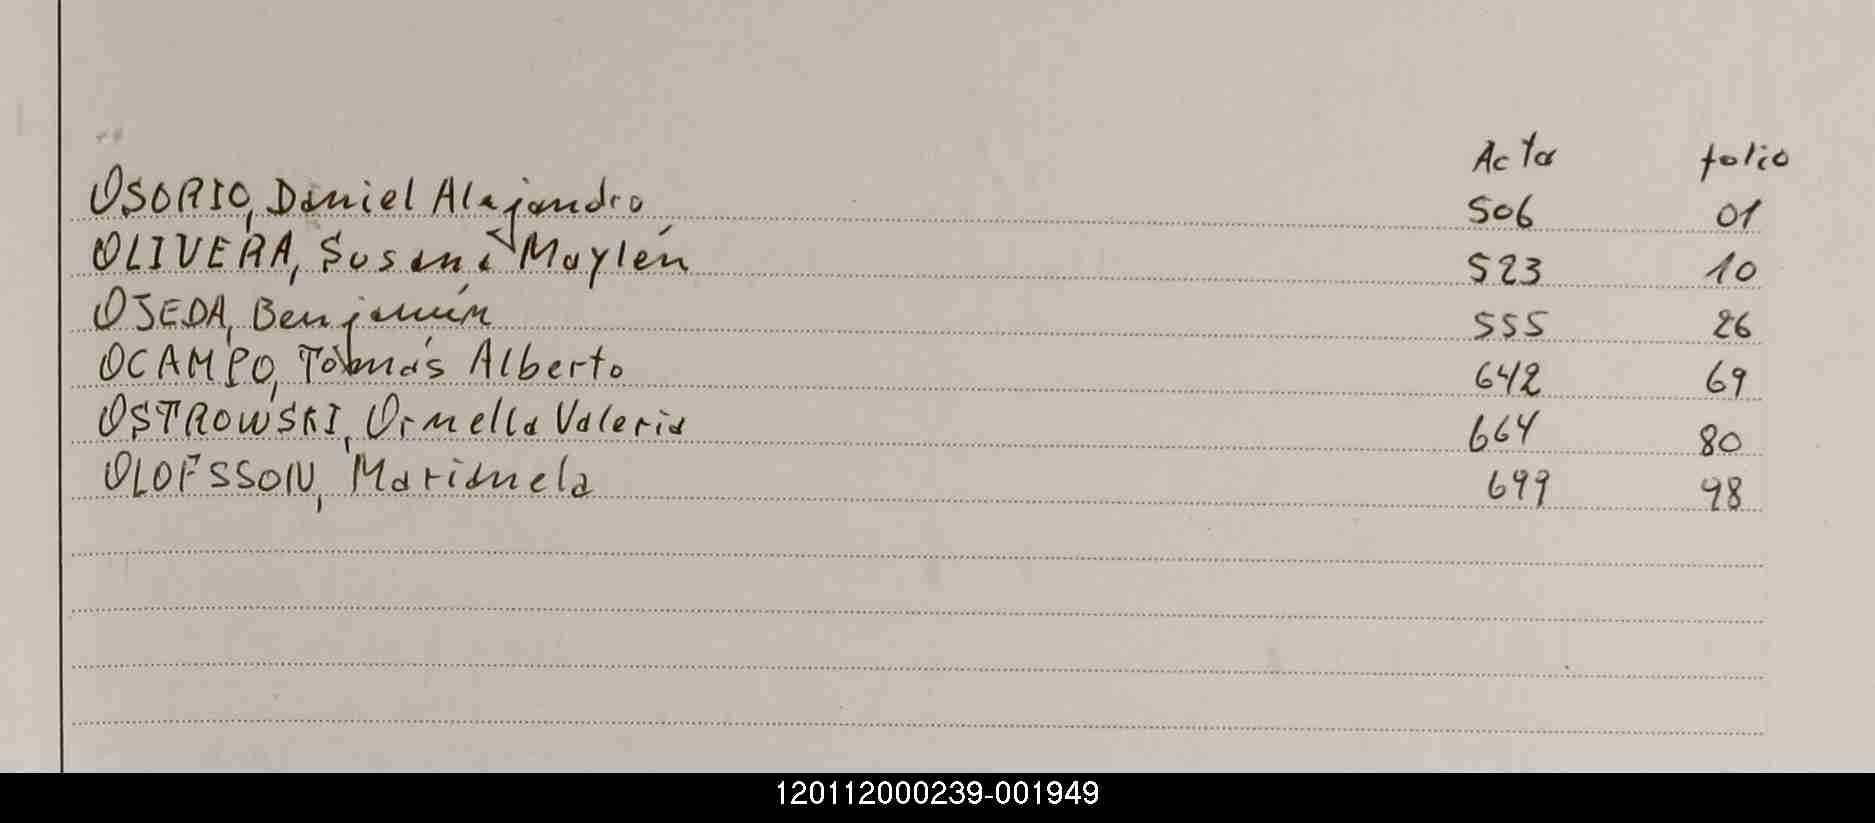 Acta folio
OSORIO, Daniel Alejandro 506 01
OLIVERA, Susana Maylén 523 10
OJEDA, Benjamín 555 26
OCAMPO, Tomás Alberto 642 69
OSTROWSKI, Ornella Valeria 664 80
OLOFSSON, Marianela 699 98
120112000239-001949